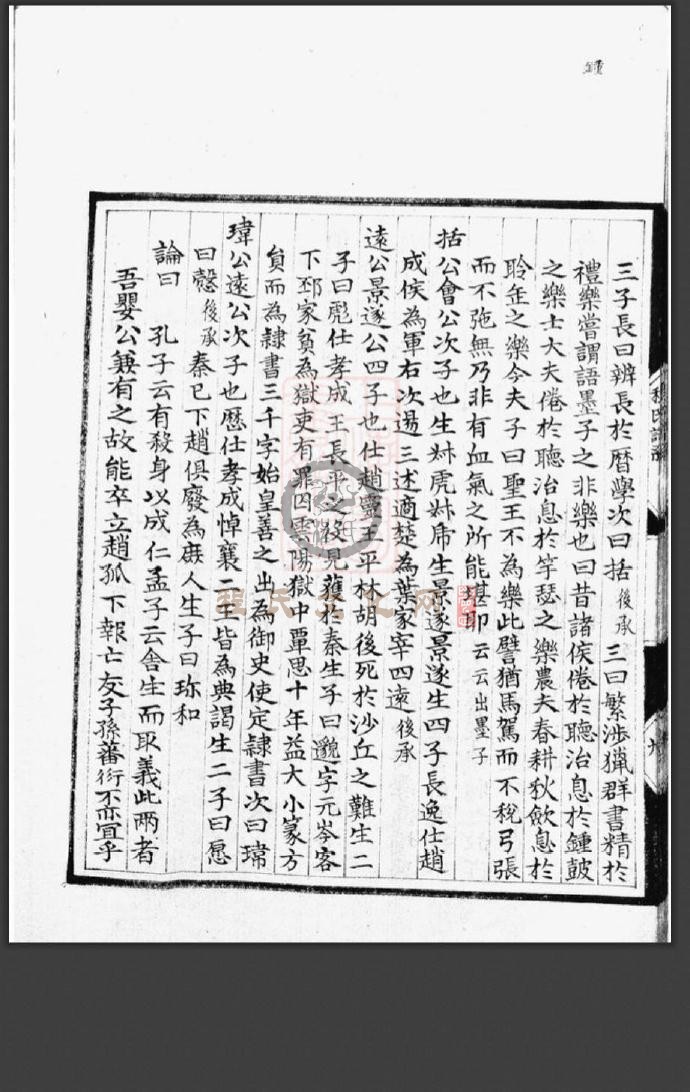 鐘
三子長曰辨長於曆學次曰括後承三曰繁涉獵群書精於
禮樂嘗謂語墨子之非樂也曰昔諸侯倦於聽治息於鍾鼓
之樂士大夫倦於聽治息於竽瑟之樂農夫春耕秋斂息於
聆缶之樂今夫子曰聖王不為樂此譬猶馬駕而不稅弓張
而不弛無乃非有血氣之所能堪耶云云出墨子
括公會公次子也生㭊虎㭊席生景遂景遂生四子長逸仕趙
成侯為軍右次逿三述適楚為葉家宰四遠後承
遠公景遂公四子也仕趙靈王平林胡後死於沙丘之難生二
子曰彪仕孝成王長平之役見獲於秦生子曰邈字元岑客
下邳家貧為獄吏有罪囚雲陽獄中覃思十年益大小篆方
負而為隸書三千字始皇善之出為御史使定隸書次曰瑋
瑋公遠公次子也歷仕孝成悼襄二王皆為典謁生二子曰愿
曰愨後承秦已下趙俱廢為庶人生子曰珎和
論曰孔子云有殺身以成仁孟子云舍生而取義此兩者
吾嬰公兼有之故能卒立趙孤下報亡友子孫蕃衍不亦宜乎
程氏文化网